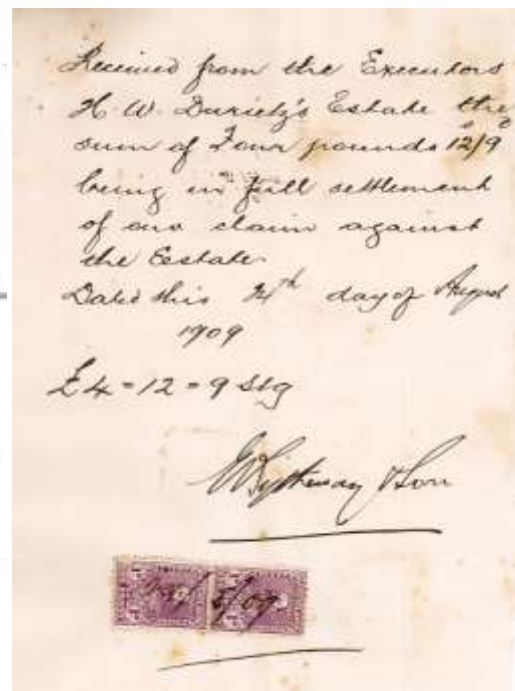 Received from the Executors
H. W. Durietz's Estate the
sum of Four pounds 12/9
being in full settlement
of our claim against
the Estate.
Dated this 24th day of August
1909
£4=12=9 Stg
& Son
/09